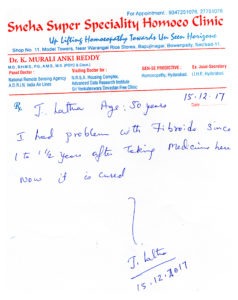 For Appointment : 9347251079, 27731079
Sneha Super Speciality Homoeo Clinic
Up Lifting Homoeopathy Towards Un Seen Horizons
Shop No. 11, Model Towers, Near Warangal Rice Stores, Bapujinagar, Bowenpally, Sec'bad-11.
Dr. K. MURALI ANKI REDDY
Panel Doctor :
National Remote Sensing Agency
A.D.R.I.N. Indis Air Lines
Visiting Doctor for :
S.R.B.S. Housing Complex,
Advanced Data Research Institute
Sri Venkateswara Devasthan Free Clinic
GEN-SE PRESCTIVE,
Homoeopathy, Hyderabad.
Ex. Joint Secretary
I.I.H.P. Hyderabad.
15.12.17
Date
J. Latha Age: 50 years
I had problem with Fibroids Since
1 to 1½ years after Taking Medicine here
Now it is cured
J. Latha
15.12.2017